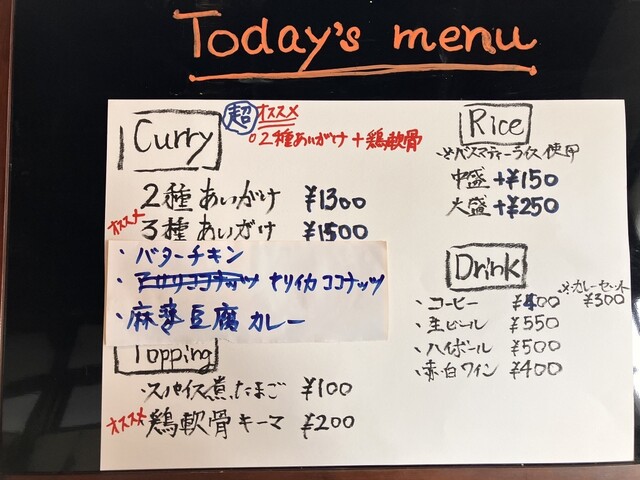 Today's menu
Curry
超 オススメ
○2種あいがけ+鶏軟骨
2種あいがけ ¥1300
オススメ
3種あいがけ ¥1500
・バターチキン
・アサリココナッツ ヤリイカココナッツ
・麻婆豆腐カレー
Topping
・スパイス煮たまご ¥100
オススメ
鶏軟骨キーマ ¥200
Rice
※バスマティーライス使用
中盛+¥150
大盛+¥250
Drink
※カレーセット
・コーヒー ¥400 ¥300
・生ビール ¥550
・ハイボール ¥500
・赤・白ワイン ¥400